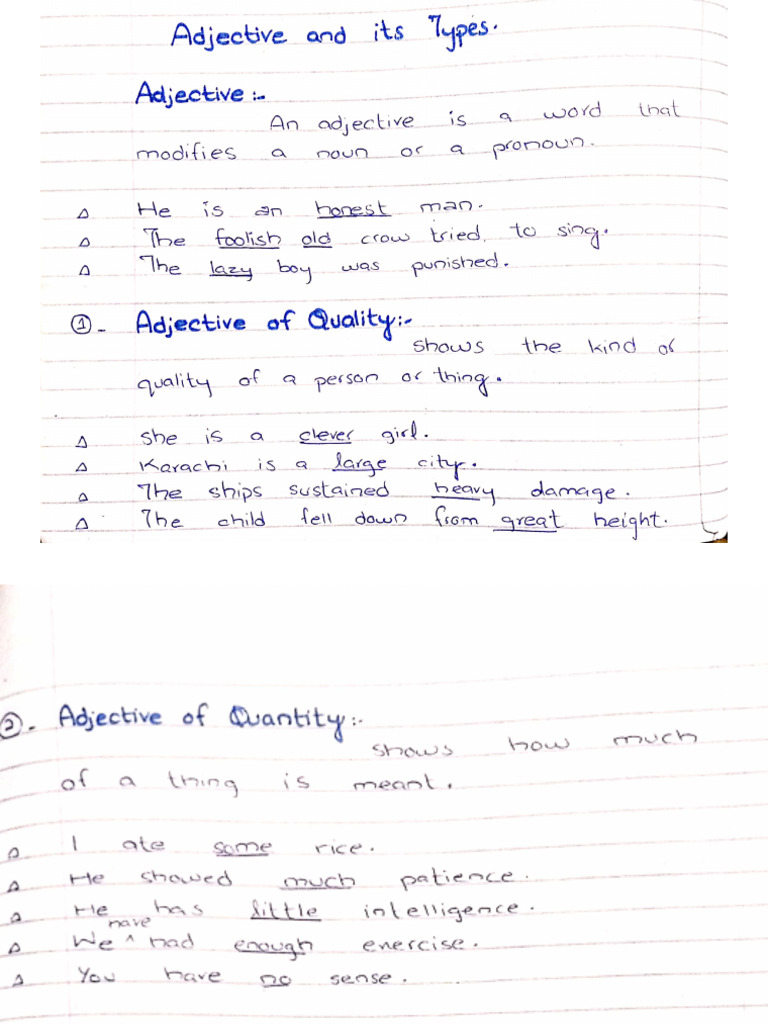 Adjective and its Types.
Adjective :-
An adjective is a word that
modifies a noun or a pronoun.
△ He is an honest man.
△ The foolish old crow tried to sing.
△ The lazy boy was punished.
①- Adjective of Quality:-
shows the kind or
quality of a person or thing.
△ she is a clever girl.
△ Karachi is a large city.
△ The ships sustained heavy damage.
△ The child fell down from great height.
②- Adjective of Quantity:-
shows how much
of a thing is meant.
△ I ate some rice.
△ He showed much patience.
△ He has little intelligence.
△ We ^have had enough enercise.
△ You have no sense.